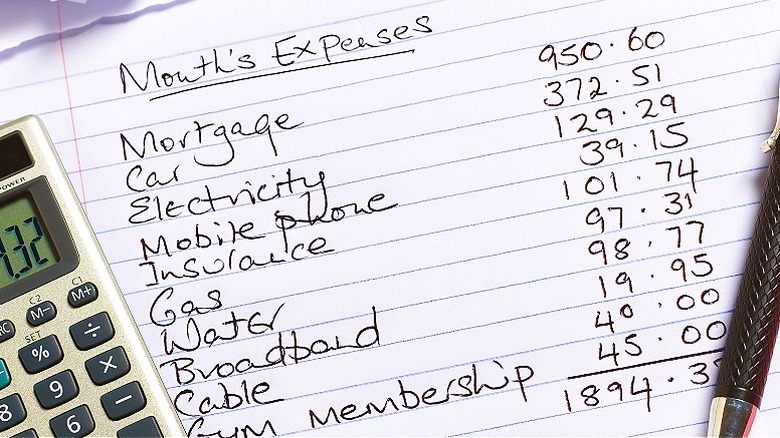 Month's Expenses
Mortgage 950.60
Car 372.51
Electricity 129.29
Mobile phone 39.15
Insurance 101.74
Gas 97.31
Water 98.77
Broadband 19.95
Cable 40.00
Gym Membership 45.00
1894.3
POWER
C2 C1
RC M− M+
SET
% ÷
9 ×
8 6 −